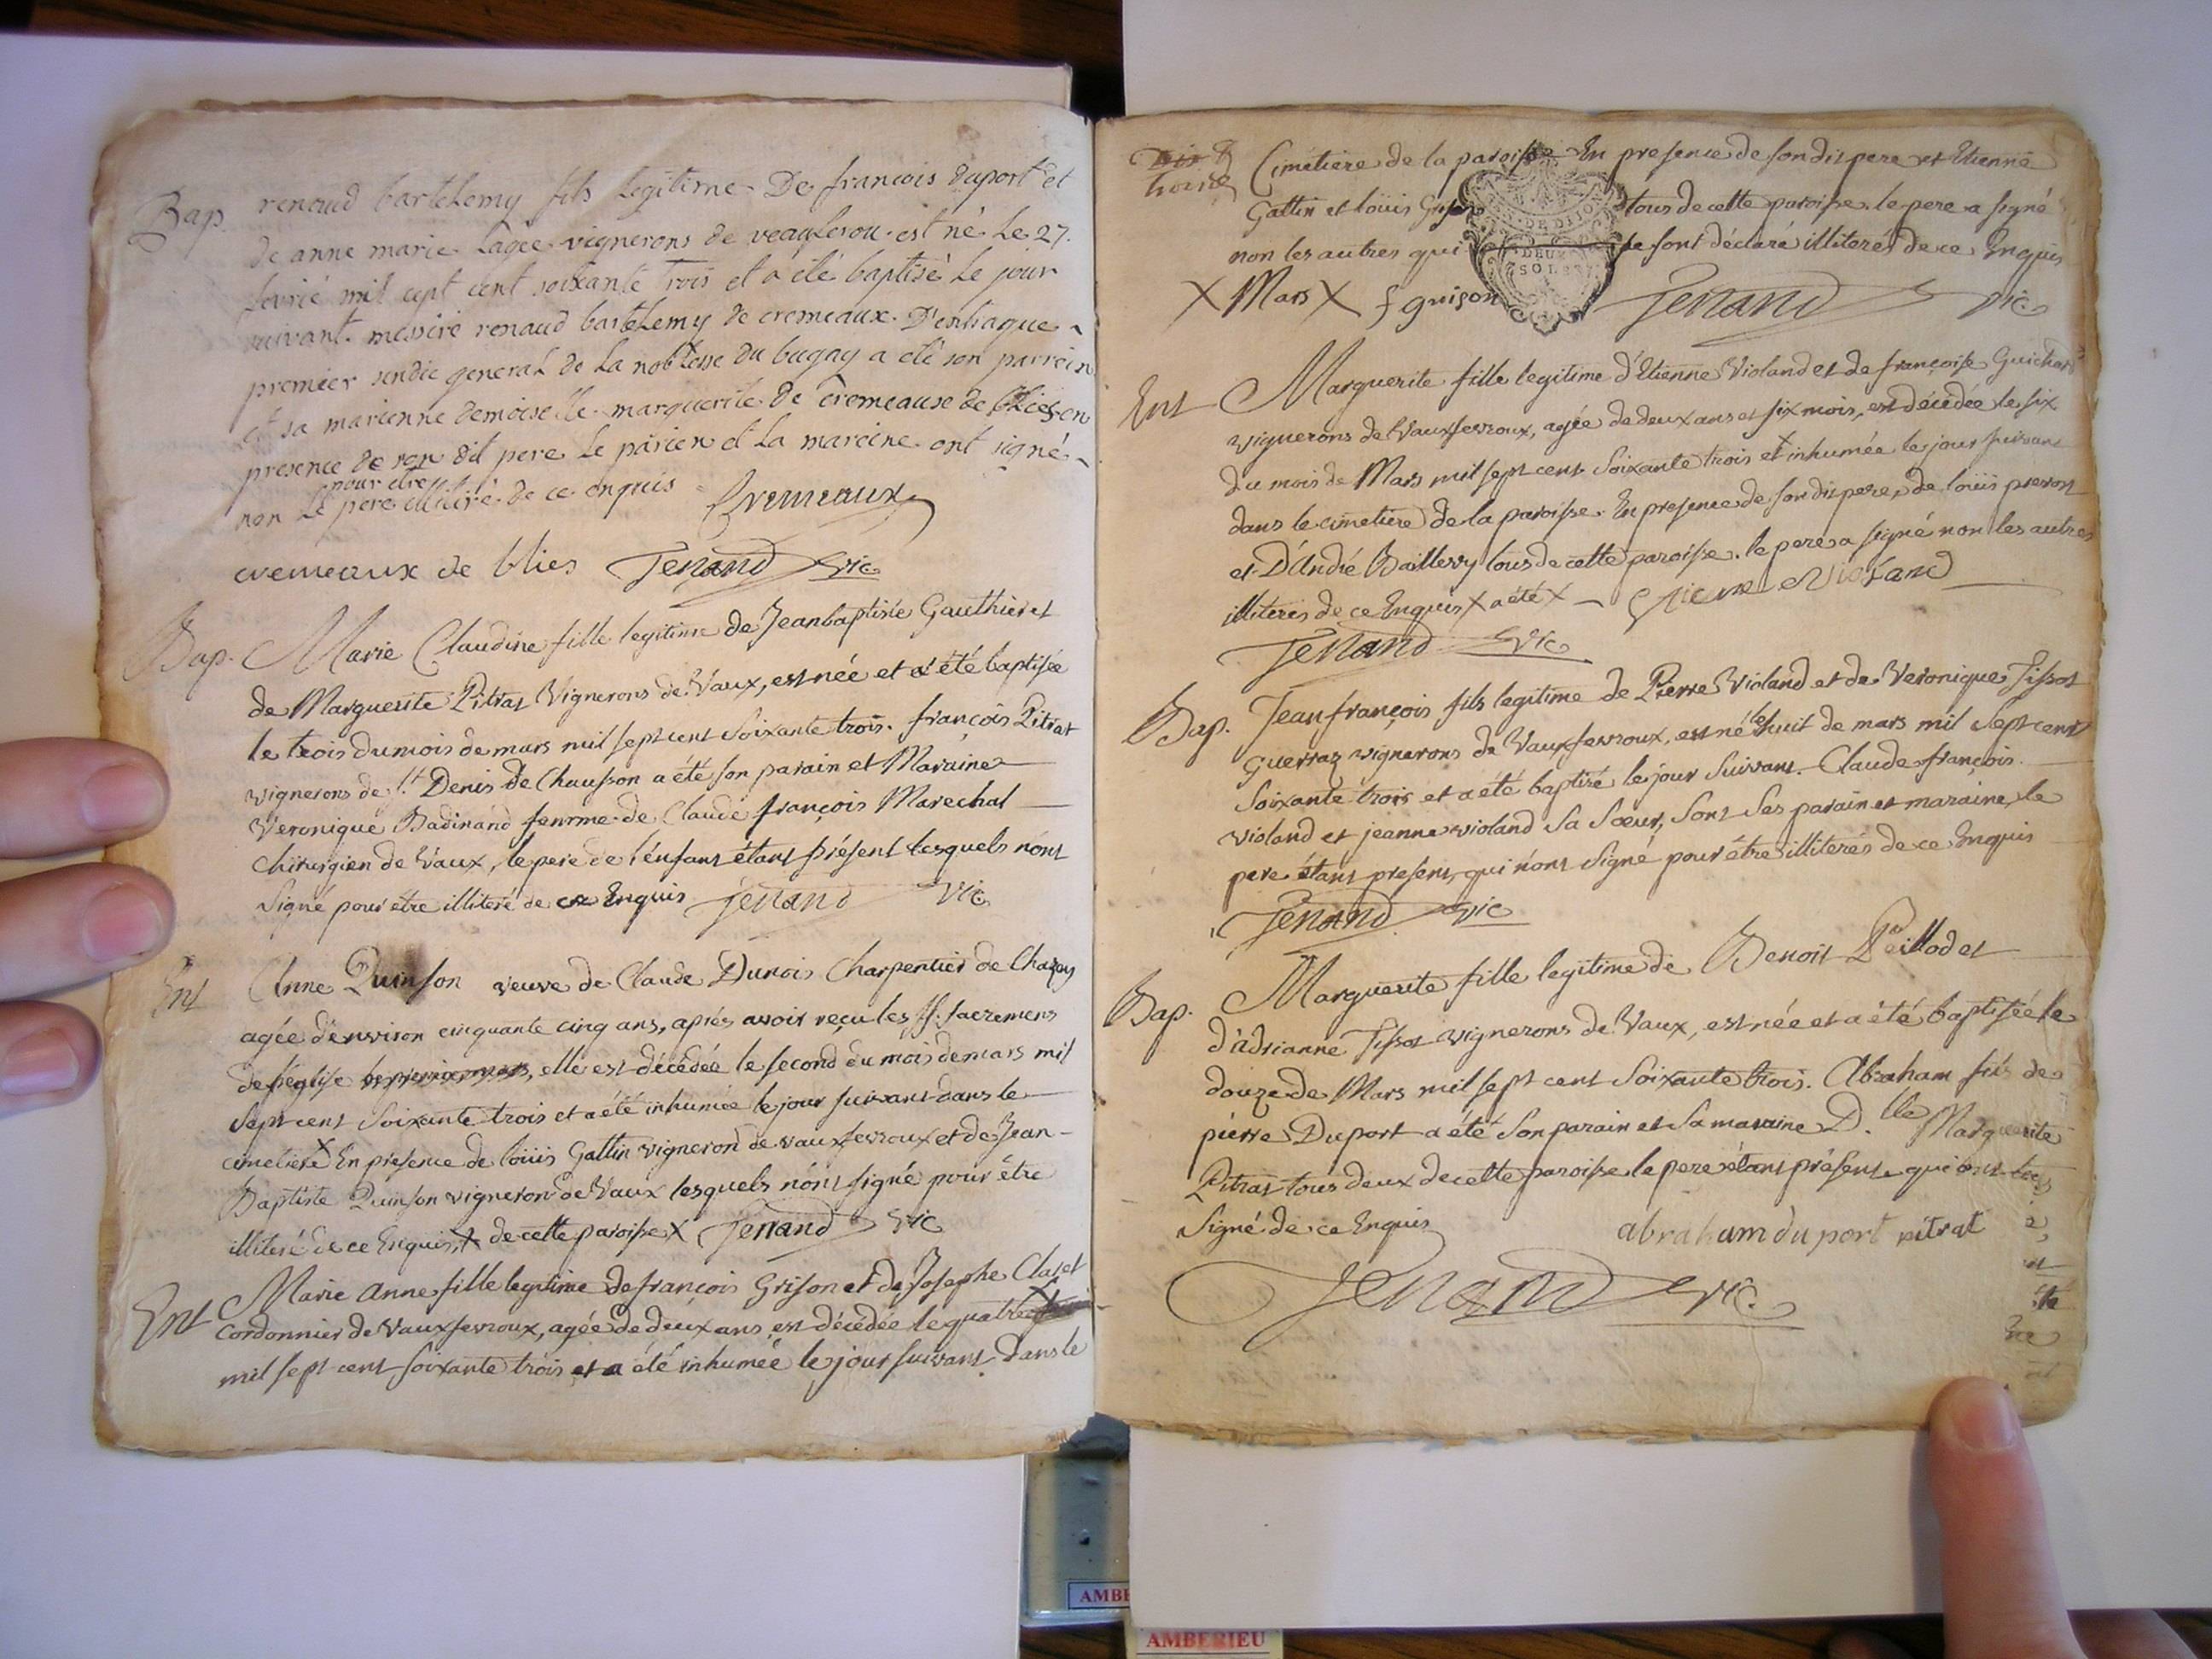 Bap. renaud bartelemy fils legitime De francois duport et
de anne marie Lagee vignerons de veaulerou est né Le 27.
fevrié mil cept cent soixante trois et a été baptisé Le jour
suivant. messire renaud bartelemy de cremeaux. D'entrague
premier sendic general de La noblesse du bugay a eté son parrein
et sa marienne demoiselle marguerite de cremeause de blies en
presence de son dit pere Le pârien et La mareine ont signé
pour etre
non Le pere illitiré de ce enquis Cremeaux
cremeaux de blies Jenand vic
Bap. Marie Claudine fille legitime de Jeanbaptiste Gauthier et
de Marguerite Pitrat Vignerons de Vaux, est née et a été baptisée
le trois du mois de mars mil sept cent Soixante trois. françois Pitrat
vignerons de St Denis de Chausson a été son parain et Maraine
Veronique Badinand femme de Claude françois Marechal
Chirurgien de Vaux, le pere de l'enfant étant présent lesquels n'ont
Signé pour etre illiteré de ce Enquis Jenand vic
Ent Anne Quinson veuve de Claude Dunois Charpentier de Chazey
agée d'environ cinquante cinq ans, aprés avoir reçu les SS. sacremens
de l'église, elle est décédée le second du mois de mars mil
Sept cent Soixante trois et a été inhumée le jour suivant dans le
cimetiere X En presence de loüis Gattin vigneron de vauxfevroux et de Jean-
Baptiste Quinson vigneron de Vaux lesquels n'ont signé pour être
illiteré de ce Enquis, X de cette paroisse X Jenand vic
Ent Marie Anne fille legitime de françois Grison et de Josephe Claret
Cordonnier de Vauxfevroux, agée de deux ans est décédée le quatre X
mil sept cent Soixante trois et a été inhumée le jour suivant Dans le
Cimetiere de la paroisse En presence de son dit pere et Etienne
Gattin et loüis tous de cette paroisse. le pere a signé
non les autres qui se sont déclaré illiterés de ce Enquis
X Mars X f grison Jenand vic
DEUX
SOLS
Ent Marguerite fille legitime d'Etienne Violand et de françoise Guichard
vignerons de Vauxfevroux, agée de deux ans et six mois, est décédée le six
du mois de Mars mil sept cent Soixante trois et X inhumée le jour suivant
dans le cimetiere de la paroisse. En presence de son dit pere, de loüis prevost
et D'André Baillevy tous de cette paroisse. le pere a signé non les autres
illiteres de ce Enquis X a été X Etienne Violand
Jenand vic
Bap. Jean françois fils legitime de Pierre Violand et de Veronique Tissot
le
Guerraz vignerons de Vauxfevroux, est né huit de mars mil Sept cent
Soixante trois et a été baptisé le jour Suivant. Claude françois
violand et jeanne violand Sa Sœur, Sont Ses parain et maraine, le
pere étant present, qui n'ont Signé pour être illiterés de ce Enquis
Jenand vic
Bap. Marguerite fille legitime de Benoit Peillod et
d'Adrianne Tissot vignerons de Vaux, est née et a été baptisée le
douze de Mars mil sept cent Soixante trois. Abraham fils de
pierre Duport a été Son parain et Sa maraine D.lle Marguerite
Pitrat tous deux de cette paroisse le pere étant présent qui ont tous
Signé de ce Enquis abraham du port pitrat
Jenand vic.
AMBE
AMBERIEU